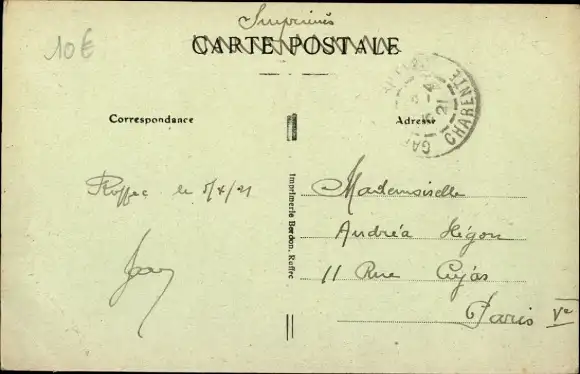 Imprimés
10€
CARTE POSTALE
Correspondance
Adresse
CHARENTE
21
Ruffec le 5/4/21
Imprimerie Berdon, Ruffec
Mademoiselle
Andréa Hégon
11 Rue Cujas
Paris Ve